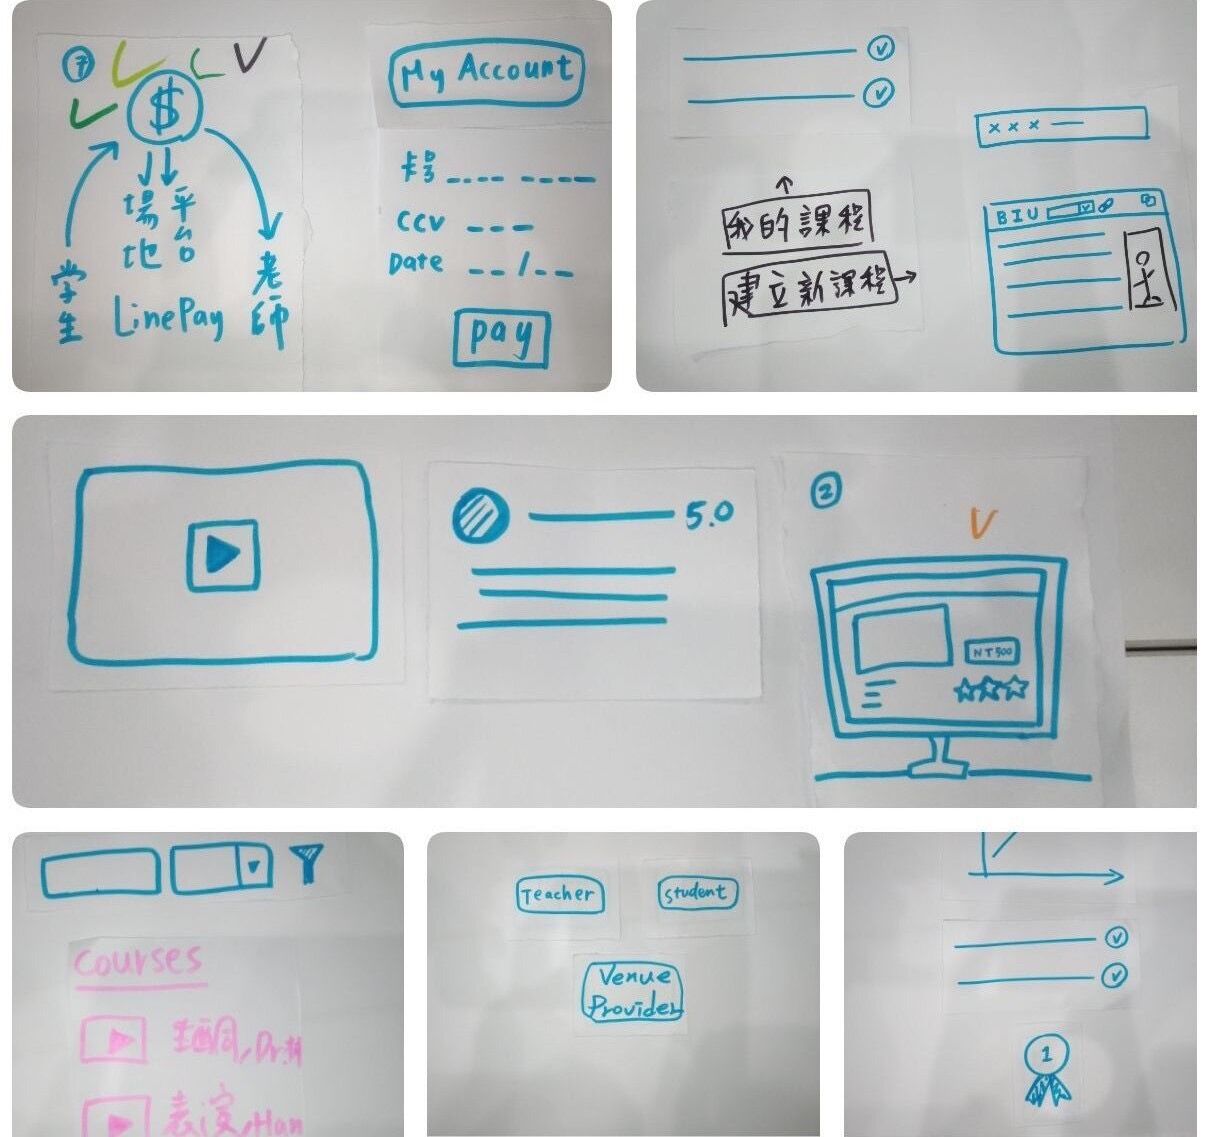 7
$
場地
平台
学生
LinePay
老師
My Account
卡号
CCV
Date
pay
我的課程
建立新課程
xxx
B I U
5.0
2
NT500
Courses
表演, Han
Teacher
Student
Venue
Provider
1